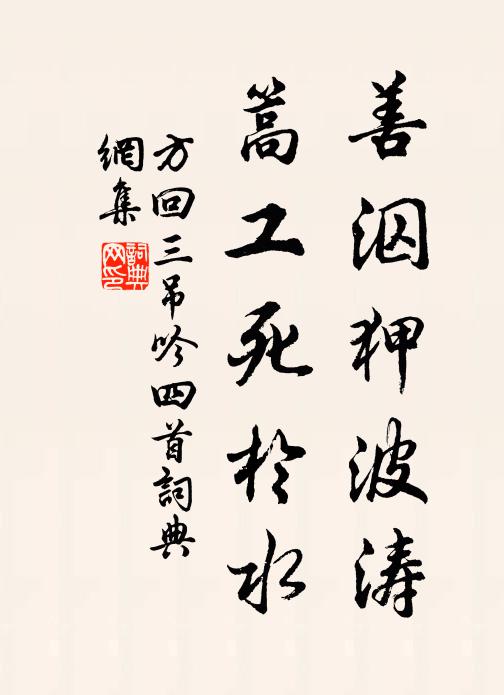 善泅狎波涛
篙工死於水
方回三吊吟四首詞典
網集
詞典网印